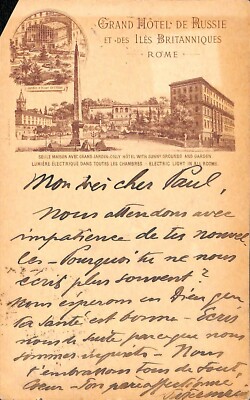 GRAND HÔTEL DE RUSSIE
ET DES ILES BRITANNIQUES
ROME
SEULE MAISON AVEC GRAND JARDIN. ONLY HOTEL WITH SUNNY GROUNDS AND GARDEN
LUMIÈRE ELECTRIQUE DANS TOUTES LES CHAMBRES - ELECTRIC LIGHT IN ALL ROOMS
Mon très cher Paul,
Nous attendons avec
impatience de tes nouvel
les - Pourquoi tu ne nous
écris plus souvent?
Nous esperons en Dieu que
ta Santé est bonne - Ecris
nous de suite parceque nous
sommes inquiets - Nous
t'embrassons tous de tout
Coeur - Ton